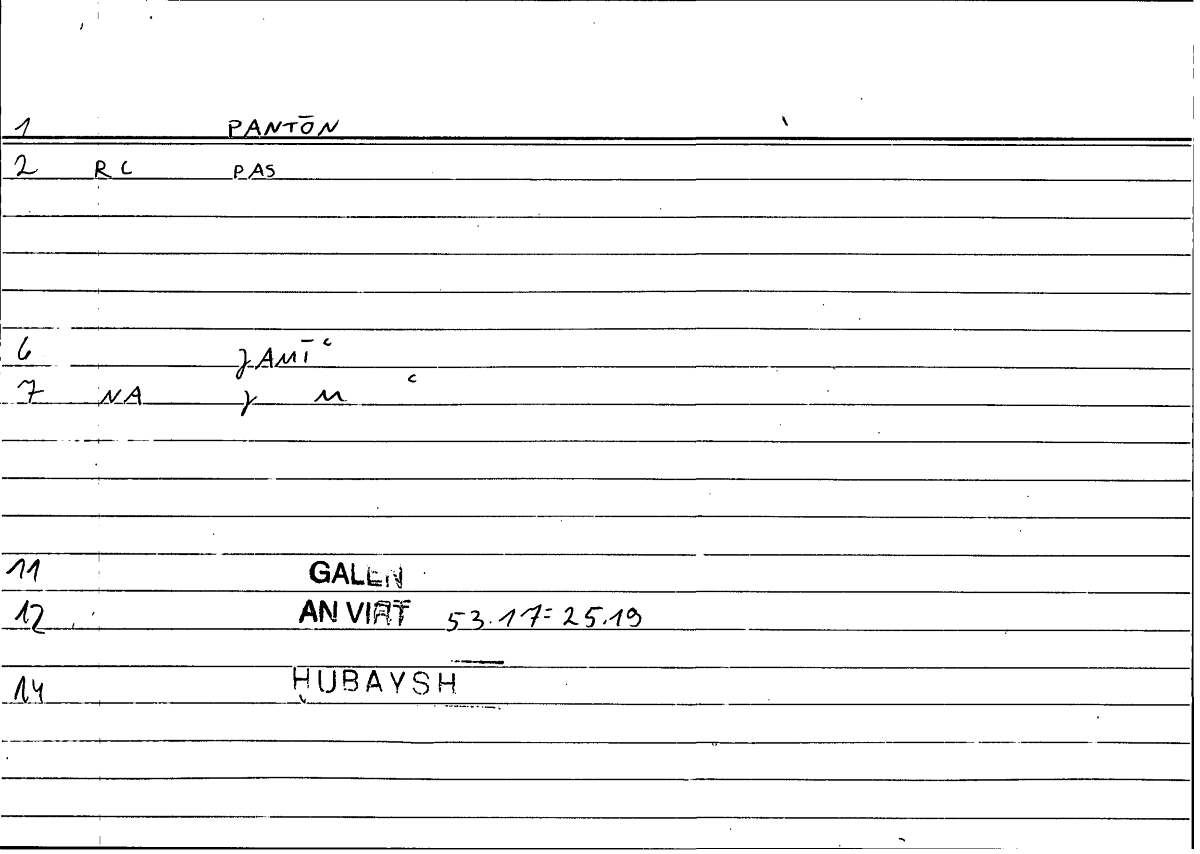 1 PANTŌN
2 RC PAS
6 ʒAMĪʿ
7 NA ʒ M ʿ
11 GALEN
12 AN VIRT 53.17=25.19
14 ḤUBAYSH